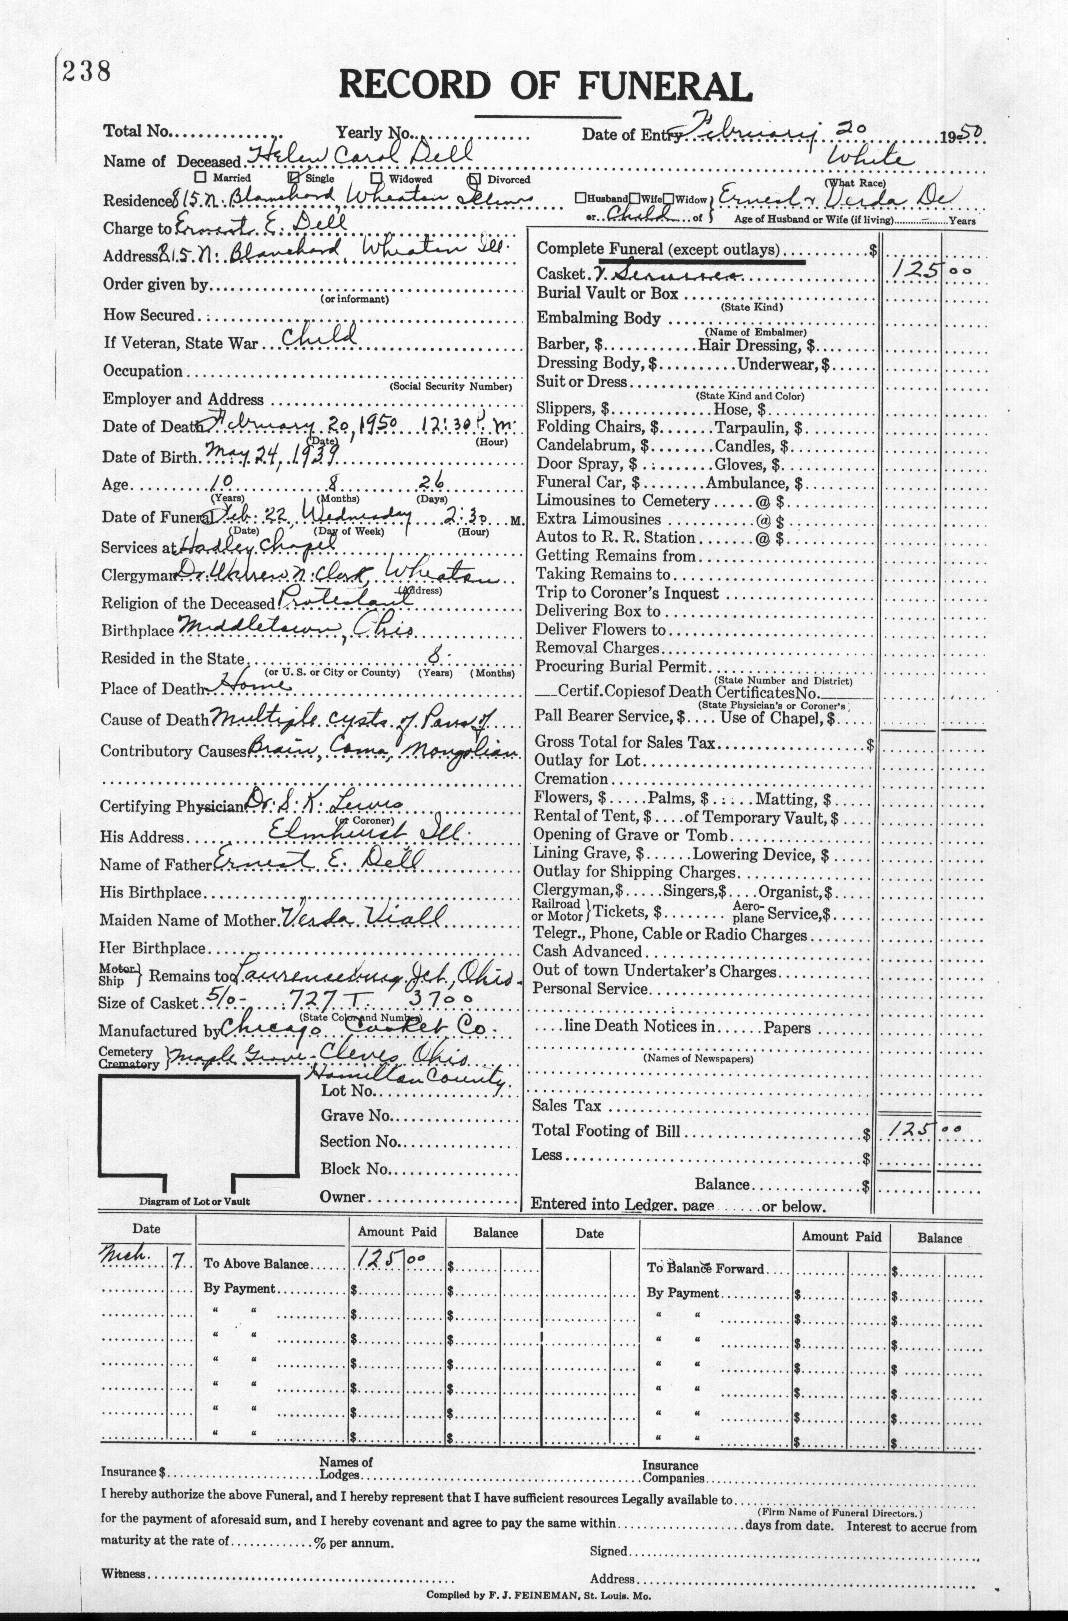 238
RECORD OF FUNERAL
Total No. Yearly No. Date of Entry February 20 1950
Name of Deceased Helen Carol Dell White
Married Single Widowed Divorced (What Race)
Residence 815 N. Blanchard, Wheaton Illinois Husband Wife Widow } Ernest & Verda De
or Child of } Age of Husband or Wife (if living) Years
Charge to Ernest E. Dell
Address 815 N. Blanchard, Wheaton Ill.
Order given by
(or informant)
How Secured
If Veteran, State War Child
Occupation
(Social Security Number)
Employer and Address
Date of Death February 20, 1950 12:30 P. M.
(Date) (Hour)
Date of Birth May 24, 1939
Age 10 8 26
(Years) (Months) (Days)
Date of Funeral Feb. 22, Wednesday 2:30 M.
(Date) (Day of Week) (Hour)
Services at Hadley Chapel
Clergyman Dr. Warren N. Clark, Wheaton
(Address)
Religion of the Deceased Protestant
Birthplace Middletown, Ohio
Resided in the State 8
(or U. S. or City or County) (Years) (Months)
Place of Death Home
Cause of Death Multiple cysts of Pons of
Contributory Causes Brain, Coma, Mongolian
Certifying Physician Dr. S. K. Lewis
(or Coroner)
His Address Elmhurst Ill.
Name of Father Ernest E. Dell
His Birthplace
Maiden Name of Mother Verda Viall
Her Birthplace
Motor
Ship } Remains to Lawrenceburg Jct., Ohio.
Size of Casket 5/0- 727 T. 3700
(State Color and Number)
Manufactured by Chicago Casket Co.
Cemetery
Crematory } Maple Grove - Cleves, Ohio
Hamilton County
Lot No.
Grave No.
Section No.
Block No.
Owner
Diagram of Lot or Vault
Complete Funeral (except outlays) $
Casket & Services 125 00
Burial Vault or Box
(State Kind)
Embalming Body
(Name of Embalmer)
Barber, $ Hair Dressing, $
Dressing Body, $ Underwear, $
Suit or Dress
(State Kind and Color)
Slippers, $ Hose, $
Folding Chairs, $ Tarpaulin, $
Candelabrum, $ Candles, $
Door Spray, $ Gloves, $
Funeral Car, $ Ambulance, $
Limousines to Cemetery @ $
Extra Limousines @ $
Autos to R. R. Station @ $
Getting Remains from
Taking Remains to
Trip to Coroner's Inquest
Delivering Box to
Deliver Flowers to
Removal Charges
Procuring Burial Permit
(State Number and District)
Certif. Copies of Death Certificates No.
(State Physician's or Coroner's
Pall Bearer Service, $ Use of Chapel, $
Gross Total for Sales Tax $
Outlay for Lot
Cremation
Flowers, $ Palms, $ Matting, $
Rental of Tent, $ of Temporary Vault, $
Opening of Grave or Tomb
Lining Grave, $ Lowering Device, $
Outlay for Shipping Charges
Clergyman, $ Singers, $ Organist, $
Railroad
or Motor } Tickets, $ Aero-
plane Service, $
Telegr., Phone, Cable or Radio Charges
Cash Advanced
Out of town Undertaker's Charges
Personal Service
line Death Notices in Papers
(Names of Newspapers)
Sales Tax
Total Footing of Bill $ 125 00
Less $
Balance $
Entered into Ledger, page or below.
Date Amount Paid Balance Date Amount Paid Balance
Mch. 7 To Above Balance 125 00 $ To Balance Forward $
By Payment $ $ By Payment $ $
" " $ $ " " $ $
" " $ $ " " $ $
" " $ $ " " $ $
" " $ $ " " $ $
" " $ $ " " $ $
" " $ $ " " $ $
Insurance $ Names of
Lodges Insurance
Companies
I hereby authorize the above Funeral, and I hereby represent that I have sufficient resources Legally available to
(Firm Name of Funeral Directors.)
for the payment of aforesaid sum, and I hereby covenant and agree to pay the same within days from date. Interest to accrue from
maturity at the rate of % per annum.
Signed
Witness Address
Compiled by F. J. FEINEMAN, St. Louis, Mo.